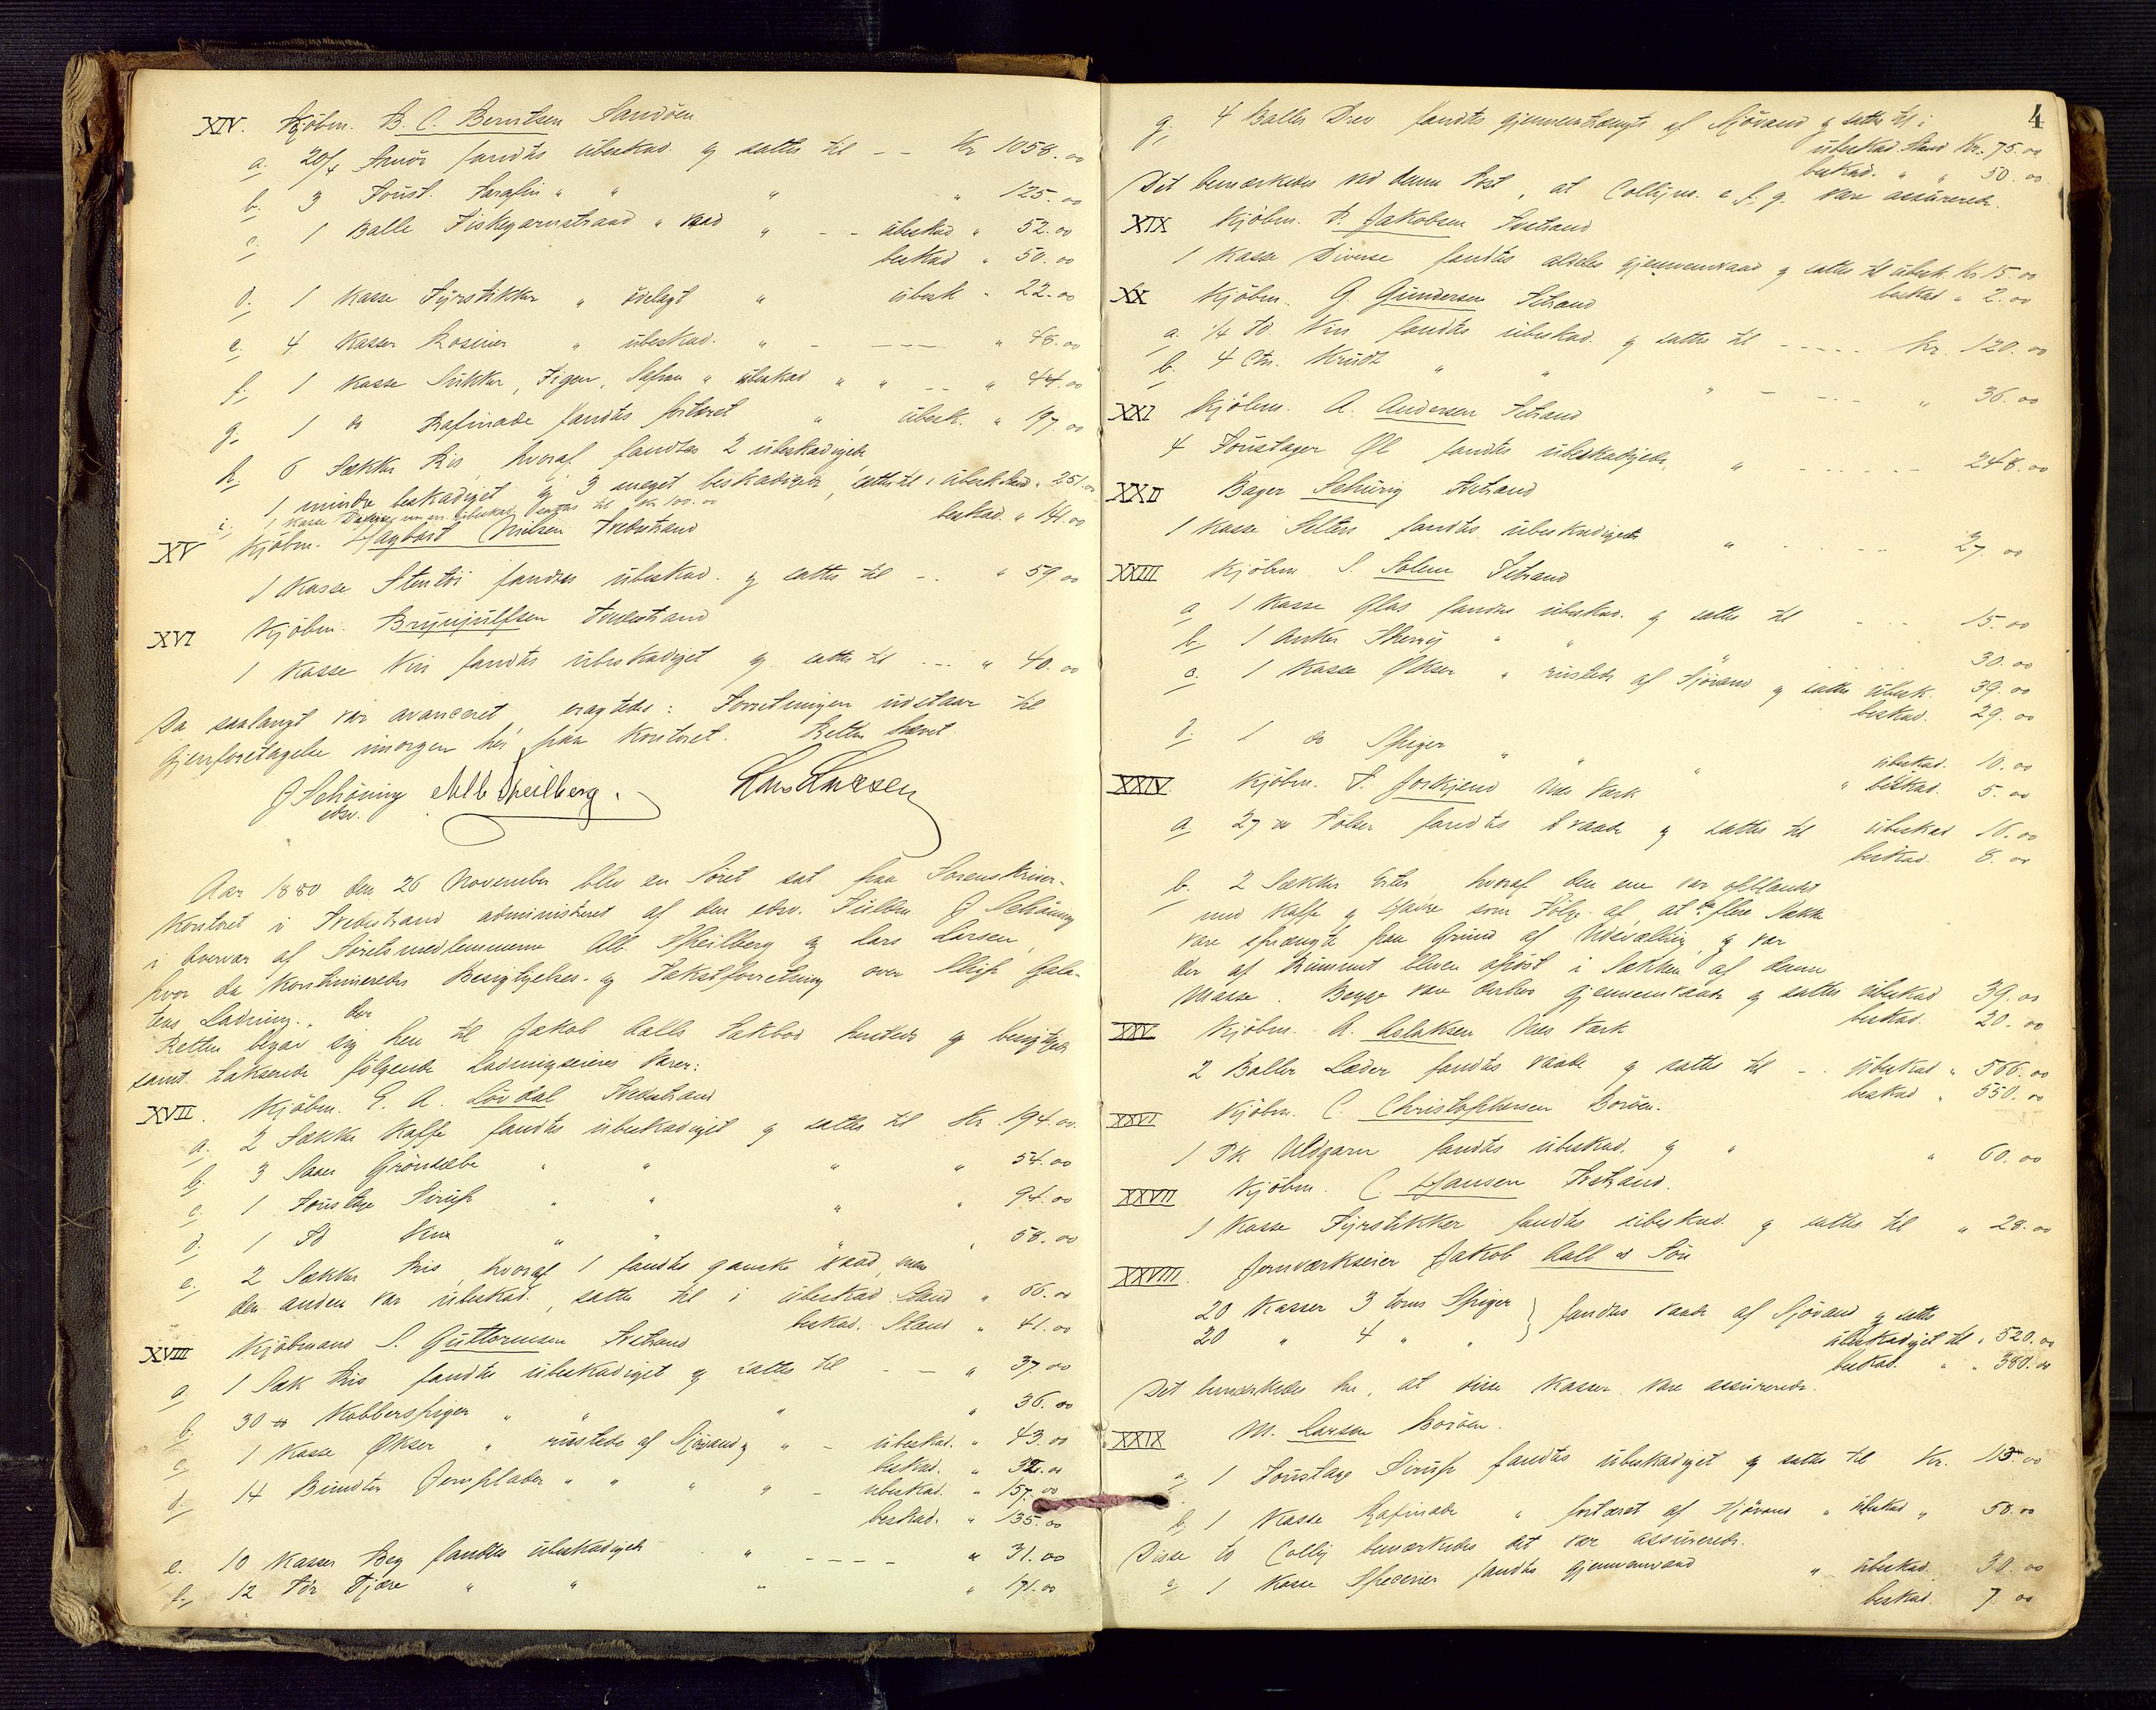 XIV. Kjöbm. B. C. Berntsen Sandöen
a. 20/4 Smör fandtes übeskad. og sattes til - - Kr 1058.00
b. 3 Foust. Parafin " " " " 125.00
c. 1 Balle Fiskegarnstraad " vaad " - - übeskad " 52.00
beskad " 50.00
d. 1 Kasse Fyrstikker " ödelagt " übesk " 22.00
e. 4 Kasser Rosiner " übeskad. " - --- " 48.00
f. 1 Kasse Sükker, Figen, Safran " übeskad " " -- " 44.00
g. 1 do Rafinade fandtes fortæret " übesk. " 197.00
h. 6 Sækker Ris, hvoraf fandtes 2 übeskadigede,
1 mindre beskadiget og 3 meget beskadigede, sattes til i übesk. Stand " 251.00
beskad. " 141.00
i. 1 Kasse übeskad. sattes til Kr 100.00
XV Kjöbm. Hagbart Nielsen Tvedestrand
1 Kasse Stentöi fandtes übeskad. og sattes til - - " 59.00
XVI Kjöbm. Brynjülfsen Tvedestrand
1 Kasse Vin fandtes übeskadiget og sattes til --- " 40.00
Da saalangt var avanceret eragtedes: Forretningen udstaar til
Gjenforetagelse imorgen her paa Kontoret. Retten hævet.
J Schöning Alb Speilberg. Lars Larsen
edsv.
Aar 1880 den 26 November blev en Söret sat paa Sorenskriver-
kontoret i Tvedestrand administreret af den edsv. Füldm. J Schöning
i Overvær af Söretsmedlemmerne Alb. Speilberg og Lars Larsen,
hvor da kontinueredes Besigtigelses- og Takstforretning over Skib Gala-
teas Ladning.
Retten begav sig hen til Jakob Aalls Pakbod hvor der besigtigedes
samt takserede fölgende Ladningseieres Varer:
XVII. Kjöbm. E. A. Lövdal Tvedestrand
a. 2 Sække Kaffe fandtes übeskadiget og sattes til Kr. 194.00
b. 3 Kasser Grönsæbe " " " " 54.00
c. 1 Foustage Sirup " " " " 94.00
d. 1 Fd Vin " " " " 58.00
e. 2 Sækker Ris, hvoraf 1 fandtes ganske vaad, men
den anden var übeskad., sattes til i übeskad. Stand " 66.00
beskad. Stand " 41.00
XVIII Kjöbmand S. Güttormsen Tvestrand
a. 1 Sæk Ris fandtes übeskadiget og sattes til - - " 37.00
b. 30 Kobberspiger " " " " 36.00
c. 1 Kasse Økser " rüstede af Sjövand og " - übeskad. " 43.00
beskad. " 32.00
d. 14 Bündter Jernplader " " " " - übeskad. " 157.00
beskad. " 135.00
e. 10 Kasser Beg fandtes übeskadigede " - - - - " 31.00
f. 12 Tdr Tjære " " " " 171.00
4
g. 4 Baller Drev fandtes gjennemtrængte af Sjövand og sattes til i
übeskad. Stand Kr. 75.00
beskad. " " 50.00
Det bemærkedes ved denne Post, at Collijne e. f. g. vare assürerede.
XIX Kjöbm. P. Jakobsen Tvestrand
1 Kasse Diverse fandtes aldeles gjennemvaad og sattes til übesk. Kr. 15.00
beskad " 2.00
XX Kjöbm. G. Gündersen Tvestrand
a. 1/4 Fd. Vin fandtes übeskad. og sattes til ----- Kr. 120.00
b. 4 Ctn. Krüdt " " " - --- " 36.00
XXI Kjöbm. A. Andersen Tvestrand
4 Foustager Øl fandtes übeskadigede " - - - - - - 248.00
XXII Bager Schürig Tvestrand
1 Kasse Selters fandtes übeskadiget " - - - - 27.00
XXIII Kjöbm. S. Solem Tvestrand
a 1 Kasse Glas fandtes übeskad. og sattes til - - - 15.00
b. 1 Anker Sherry " " " 30.00
c. 1 Kasse Økser " rüstede af Sjövand og sattes übesk. 39.00
beskad. 29.00
d. 1 do Spiger " " " übeskad. 10.00
" beskad. 5.00
XXIV. Kjöbm. T. Joskjend Næs Værk
a. 27 Pölser fandtes vaade og sattes til übeskad 16.00
beskad. 8.00
b. 2 Sækker Erter, hvoraf den ene var opblandet
med Kaffe og Havre som Fölge af, at flere Sække
vare sprængte paa Grund af Udsvælling, og var
der af Rümmet bleven oföst i Sækken af denne
Masse. Begge vare derhos gjennemvaade og sattes übeskad 39.00
beskad. 20.00
XXV. Kjöbm. A. Aslaksen Næs Værk
2 Baller Læder fandtes vaade og sattes til - - übeskad " 566.00
beskad " 550.00
XXVI Kjöbm. C. Christophersen Borøen.
1 Pk Uldgarn fandtes übeskad. og " " 60.00
XXVII Kjöbm. C. Hansen Tvestrand.
1 Kasse Fyrstikker fandtes übeskad. og sattes til " 28.00
XXVIII. Jernværkseier Jakob Aall & Sön
20 Kasser 3 toms Spiger } fandtes vaade af Sjövand og sattes
20 " 4 " " übeskadiget til " 520.00
beskad. " " 380.00
Det bemærkedes her, at disse Kasser vare assürerede.
XXIX M. Larsen Borøen.
a. 1 Foustage Sirup fandtes übeskadiget og sattes til Kr. 115.00
b. 1 Kasse Rafinade " fortæret af Sjövand " übeskad " 58.00
Disse to Collij bemærkedes det var assürerede.
c. 1 Kasse Specerier fandtes gjennemvaad " übeskad. 30.00
beskad. 7.00